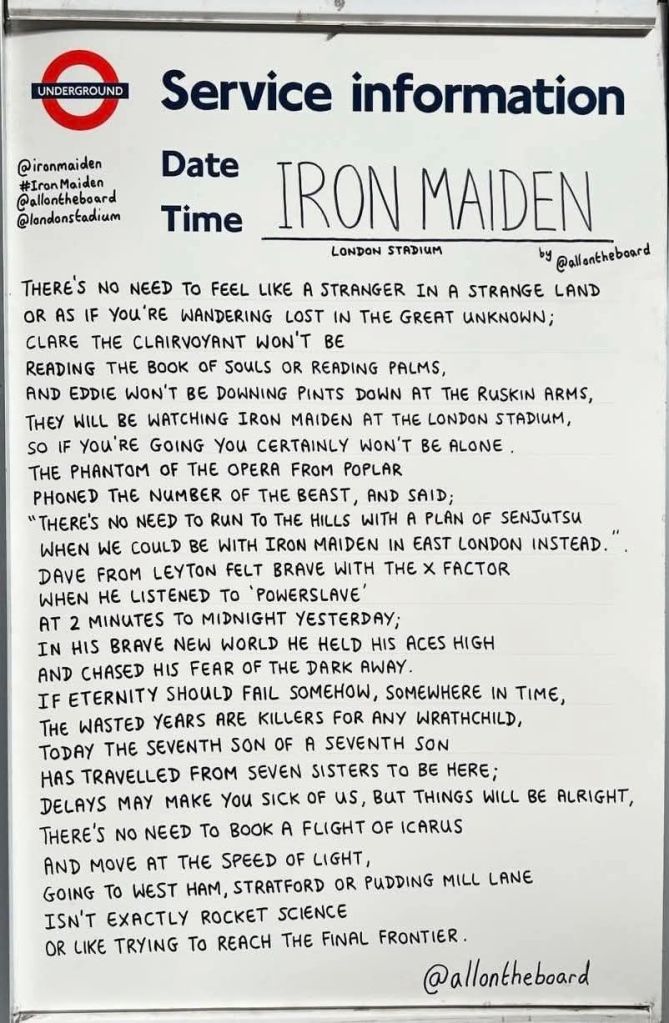 UNDERGROUND
Service information
@ironmaiden
#IronMaiden
@allontheboard
@londonstadium
Date
Time
IRON MAIDEN
LONDON STADIUM
by @allontheboard
THERE'S NO NEED TO FEEL LIKE A STRANGER IN A STRANGE LAND
OR AS IF YOU'RE WANDERING LOST IN THE GREAT UNKNOWN;
CLARE THE CLAIRVOYANT WON'T BE
READING THE BOOK OF SOULS OR READING PALMS,
AND EDDIE WON'T BE DOWNING PINTS DOWN AT THE RUSKIN ARMS,
THEY WILL BE WATCHING IRON MAIDEN AT THE LONDON STADIUM,
SO IF YOU'RE GOING YOU CERTAINLY WON'T BE ALONE.
THE PHANTOM OF THE OPERA FROM POPLAR
PHONED THE NUMBER OF THE BEAST, AND SAID;
"THERE'S NO NEED TO RUN TO THE HILLS WITH A PLAN OF SENJUTSU
WHEN WE COULD BE WITH IRON MAIDEN IN EAST LONDON INSTEAD.".
DAVE FROM LEYTON FELT BRAVE WITH THE X FACTOR
WHEN HE LISTENED TO 'POWERSLAVE'
AT 2 MINUTES TO MIDNIGHT YESTERDAY;
IN HIS BRAVE NEW WORLD HE HELD HIS ACES HIGH
AND CHASED HIS FEAR OF THE DARK AWAY.
IF ETERNITY SHOULD FAIL SOMEHOW, SOMEWHERE IN TIME,
THE WASTED YEARS ARE KILLERS FOR ANY WRATHCHILD,
TODAY THE SEVENTH SON OF A SEVENTH SON
HAS TRAVELLED FROM SEVEN SISTERS TO BE HERE;
DELAYS MAY MAKE YOU SICK OF US, BUT THINGS WILL BE ALRIGHT,
THERE'S NO NEED TO BOOK A FLIGHT OF ICARUS
AND MOVE AT THE SPEED OF LIGHT,
GOING TO WEST HAM, STRATFORD OR PUDDING MILL LANE
ISN'T EXACTLY ROCKET SCIENCE
OR LIKE TRYING TO REACH THE FINAL FRONTIER.
@allontheboard